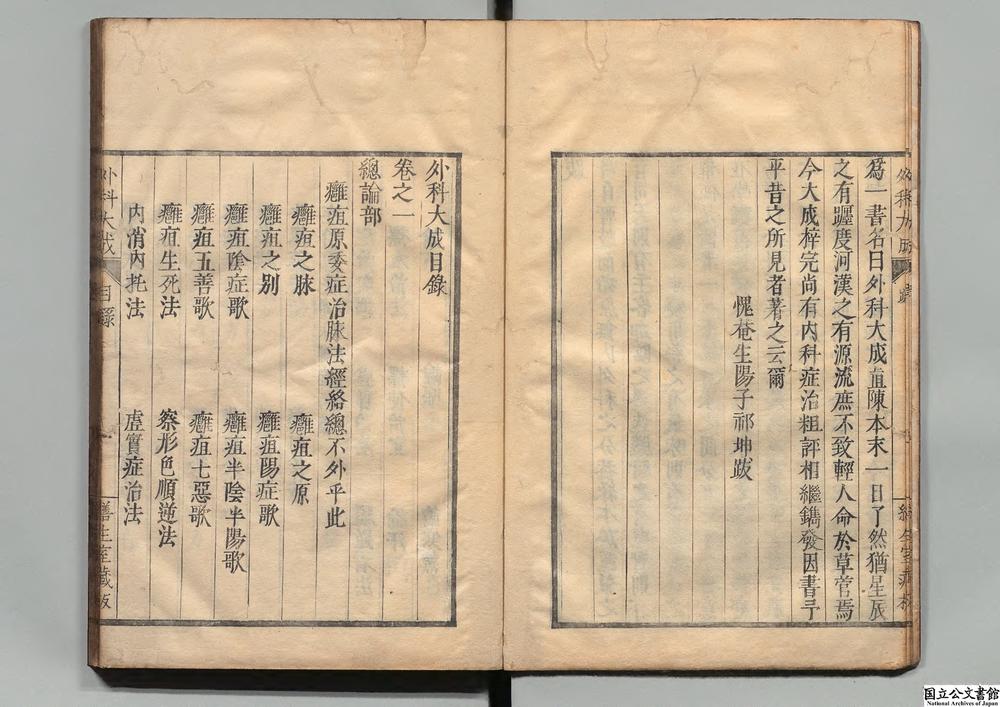 為一書名曰外科大成直陳本末一日了然猶星辰
之有躔度河漢之有源流庶不致輕人命於草菅焉
今大成梓完尚有內科症治粗評相繼鐫發因書予
平昔之所見者著之云爾
愧菴生陽子祁坤跋
外科大成目錄
卷之一
總論部
癰疽原委症治脉法經絡總不外乎此
癰疽之脉
癰疽之原
癰疽之別
癰疽陽症歌
癰疽陰症歌
癰疽半陰半陽歌
癰疽五善歌
癰疽七惡歌
癰疽生死法
察形色順逆法
內消內托法
虛實症治法
外科大成
目錄
善生堂藏板
国立公文書館
National Archives of Japan